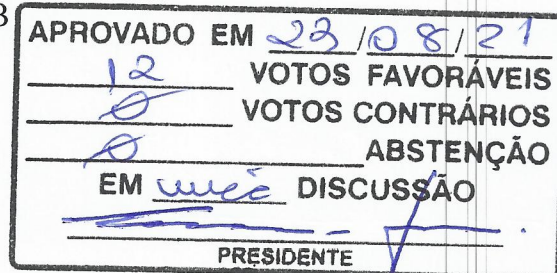 APROVADO EM 23/08/21
12 VOTOS FAVORÁVEIS
0 VOTOS CONTRÁRIOS
0 ABSTENÇÃO
EM única DISCUSSÃO
PRESIDENTE